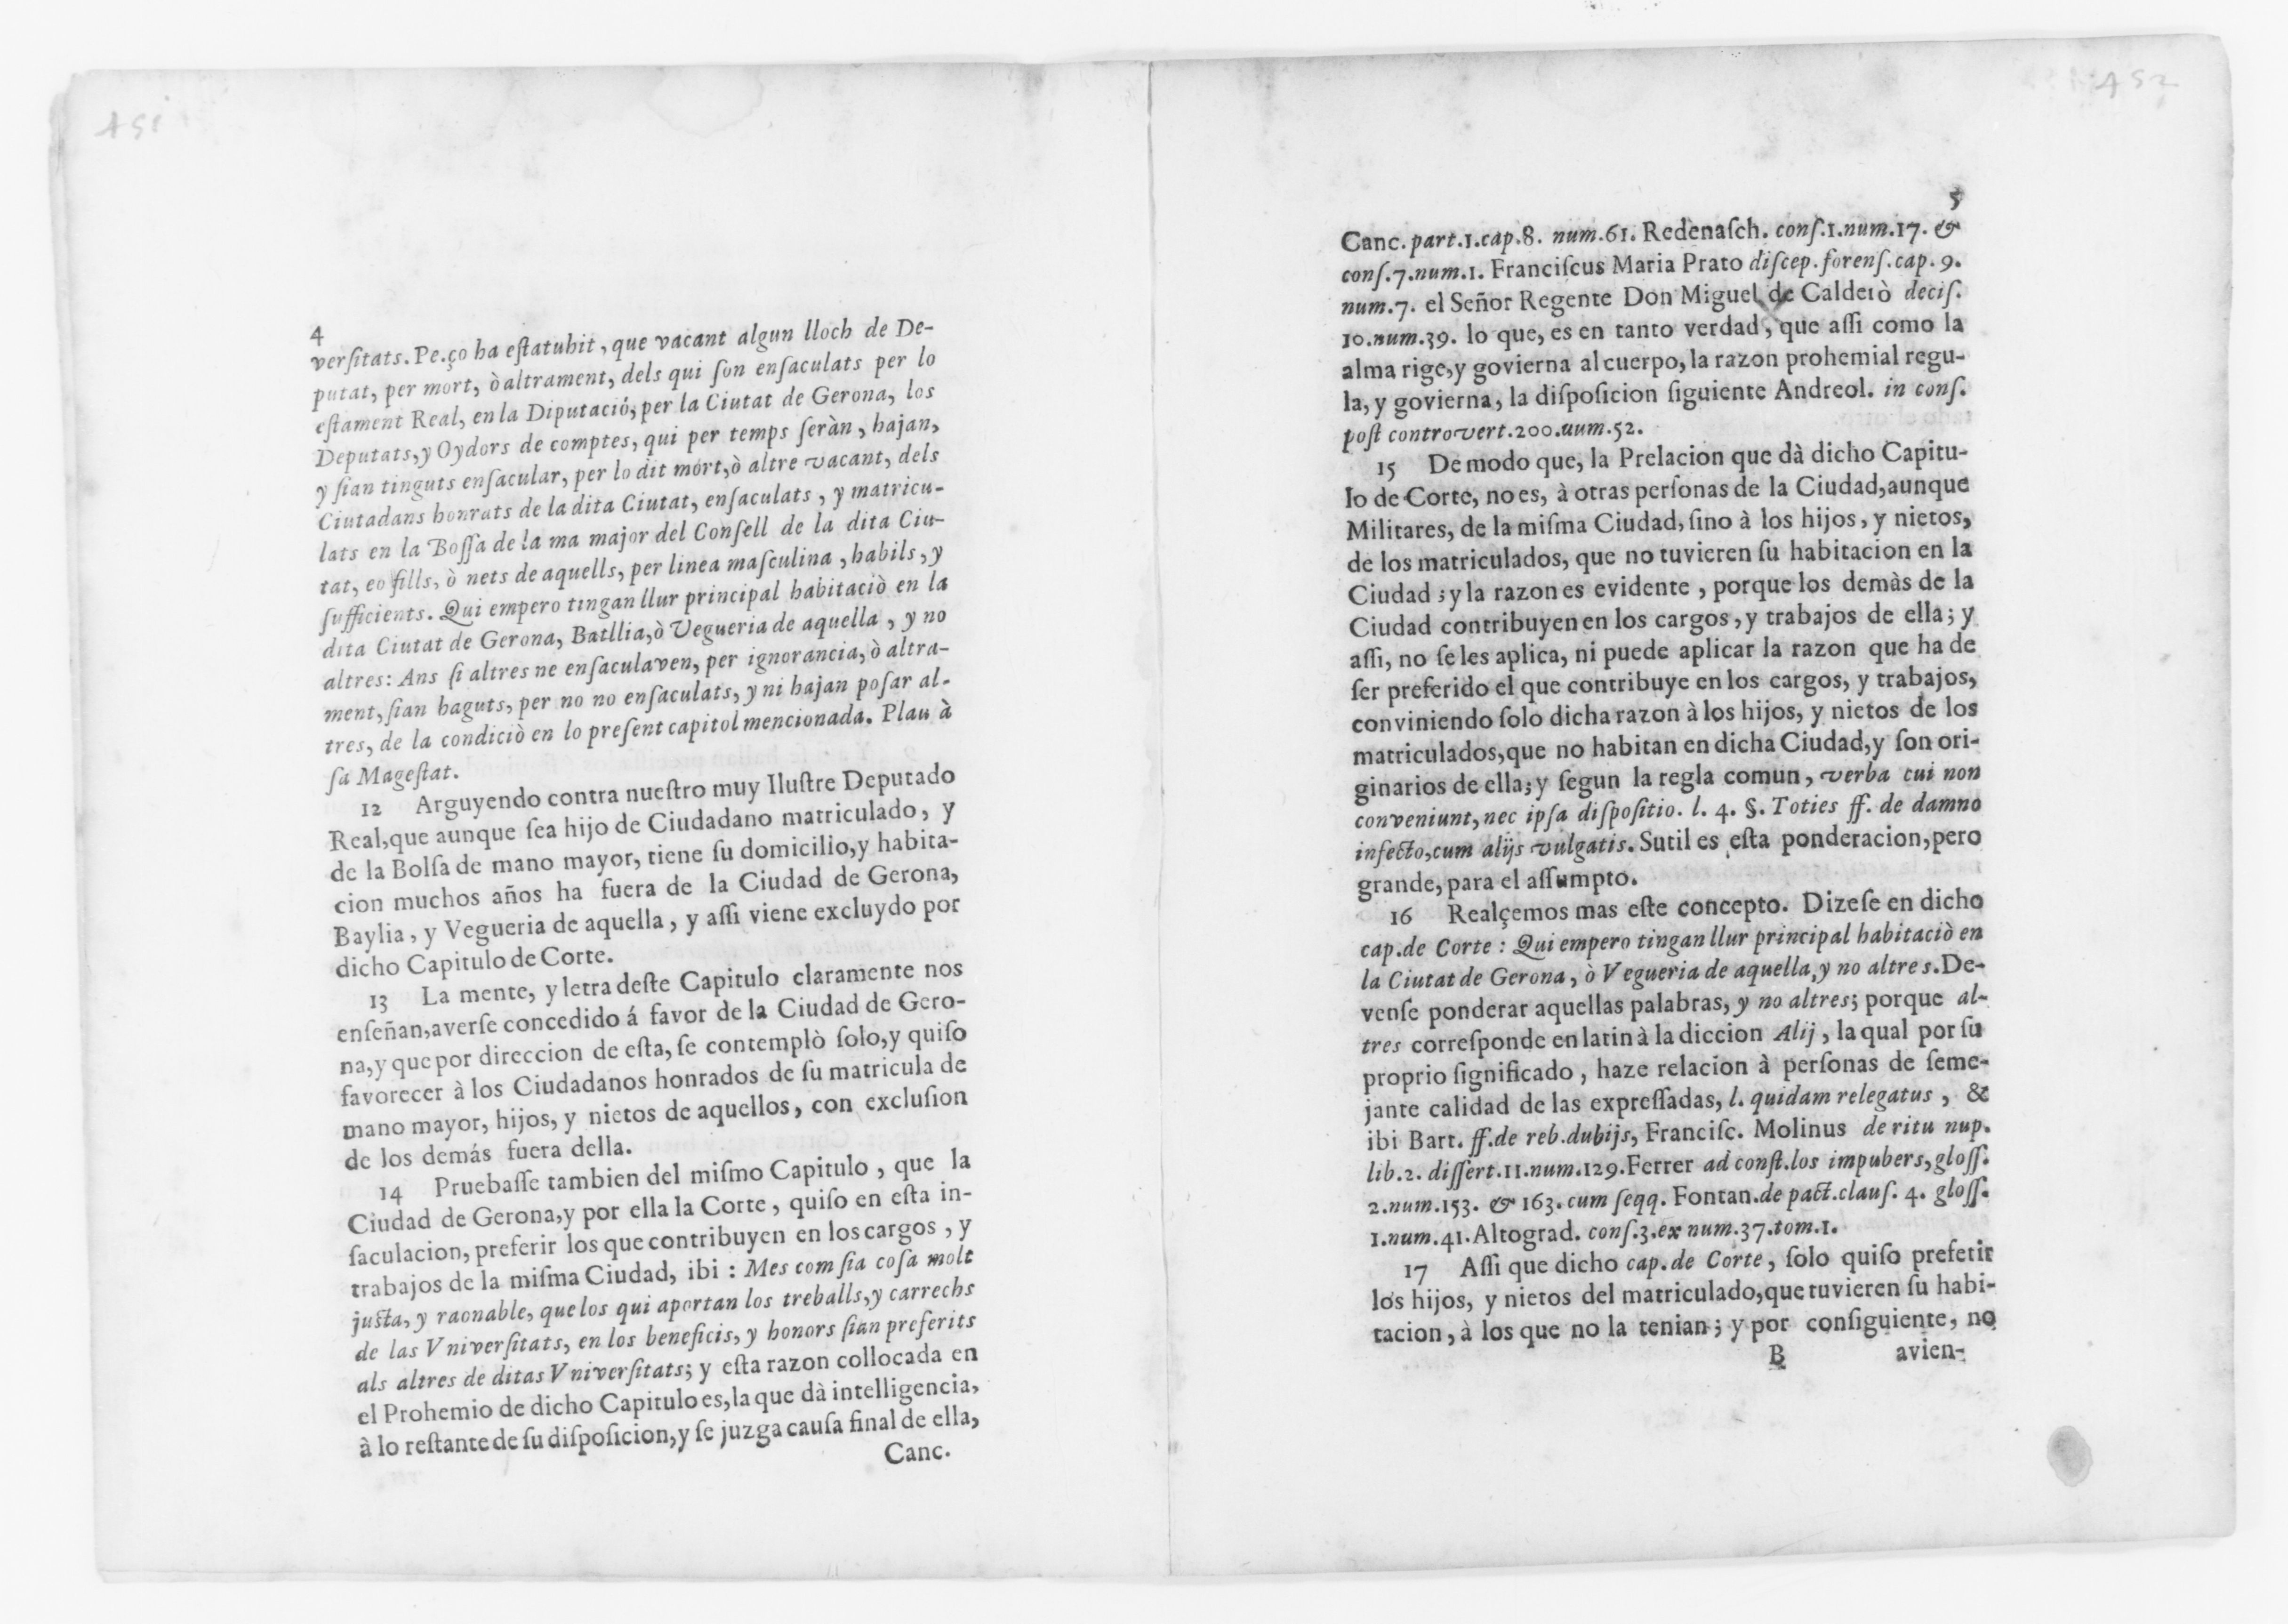 451
4
verſitats. Pe.ço ha eſtatuhit, que vacant algun lloch de De-
putat, per mort, ò altrament, dels qui ſon enſaculats per lo
eſtament Real, en la Diputació, per la Ciutat de Gerona, los
Deputats, y Oydors de comptes, qui per temps ſeràn, hajan,
y ſian tinguts enſacular, per lo dit mort, ò altre vacant, dels
Ciutadans honrats de la dita Ciutat, enſaculats, y matricu-
lats en la Boſſa de la ma major del Conſell de la dita Ciu-
tat, eo fills, ò nets de aquells, per linea maſculina, habils, y
ſufficients. Qui empero tingan llur principal habitaciò en la
dita Ciutat de Gerona, Batllia, ò Vegueria de aquella, y no
altres: Ans ſi altres ne enſaculaven, per ignorancia, ò altra-
ment, ſian haguts, per no no enſaculats, y ni hajan poſar al-
tres, de la condiciò en lo preſent capitol mencionada. Plau à
ſa Mageſtat.
12 Arguyendo contra nueſtro muy Iluſtre Deputado
Real, que aunque ſea hijo de Ciudadano matriculado, y
de la Bolſa de mano mayor, tiene ſu domicilio, y habita-
cion muchos años ha fuera de la Ciudad de Gerona,
Baylia, y Vegueria de aquella, y aſſi viene excluydo por
dicho Capitulo de Corte.
13 La mente, y letra deſte Capitulo claramente nos
enſeñan, averſe concedido á favor de la Ciudad de Gero-
na, y que por direccion de eſta, ſe contemplò ſolo, y quiſo
favorecer à los Ciudadanos honrados de ſu matricula de
mano mayor, hijos, y nietos de aquellos, con excluſion
de los demás fuera della.
14 Pruebaſſe tambien del miſmo Capitulo, que la
Ciudad de Gerona, y por ella la Corte, quiſo en eſta in-
ſaculacion, preferir los que contribuyen en los cargos, y
trabajos de la miſma Ciudad, ibi: Mes com ſia coſa molt
juſta, y raonable, que los qui aportan los treballs, y carrechs
de las Vniverſitats, en los beneficis, y honors ſian preferits
als altres de ditas Vniverſitats; y eſta razon collocada en
el Prohemio de dicho Capitulo es, la que dà intelligencia,
à lo reſtante de ſu diſpoſicion, y ſe juzga cauſa final de ella,
Canc.
452
5
Canc. part.1.cap.8. num.61. Redenaſch. conſ.1.num.17. &
conſ.7.num.1. Franciſcus Maria Prato diſcep. forenſ.cap. 9.
num.7. el Señor Regente Don Miguel de Calderò deciſ.
10.num.39. lo que, es en tanto verdad, que aſſi como la
alma rige, y govierna al cuerpo, la razon prohemial regu-
la, y govierna, la diſpoſicion ſiguiente Andreol. in conſ.
poſt controvert.200.uum.52.
15 De modo que, la Prelacion que dà dicho Capitu-
lo de Corte, no es, à otras perſonas de la Ciudad, aunque
Militares, de la miſma Ciudad, ſino à los hijos, y nietos,
de los matriculados, que no tuvieren ſu habitacion en la
Ciudad; y la razon es evidente, porque los demàs de la
Ciudad contribuyen en los cargos, y trabajos de ella; y
aſſi, no ſe les aplica, ni puede aplicar la razon que ha de
ſer preferido el que contribuye en los cargos, y trabajos,
conviniendo ſolo dicha razon à los hijos, y nietos de los
matriculados, que no habitan en dicha Ciudad, y ſon ori-
ginarios de ella; y ſegun la regla comun, verba cui non
conveniunt, nec ipſa diſpoſitio. l. 4. §. Toties ff. de damno
infecto, cum alijs vulgatis. Sutil es eſta ponderacion, pero
grande, para el aſſumpto.
16 Realçemos mas eſte concepto. Dizeſe en dicho
cap.de Corte: Qui empero tingan llur principal habitaciò en
la Ciutat de Gerona, ò Vegueria de aquella, y no altres. De-
venſe ponderar aquellas palabras, y no altres; porque al-
tres correſponde en latin à la diccion Alij, la qual por ſu
proprio ſignificado, haze relacion à perſonas de ſeme-
jante calidad de las expreſſadas, l. quidam relegatus, &
ibi Bart. ff.de reb.dubijs, Franciſc. Molinus de ritu nup.
lib.2. diſſert.11.num.129. Ferrer ad conſt.los impubers, gloſſ.
2.num.153. & 163. cum ſeqq. Fontan.de pact.clauſ. 4. gloſſ.
1.num.41. Altograd. conſ.3.ex num.37.tom.1.
17 Aſſi que dicho cap.de Corte, ſolo quiſo preferir
los hijos, y nietos del matriculado, que tuvieren ſu habi-
tacion, à los que no la tenian; y por conſiguiente, no
B avien-